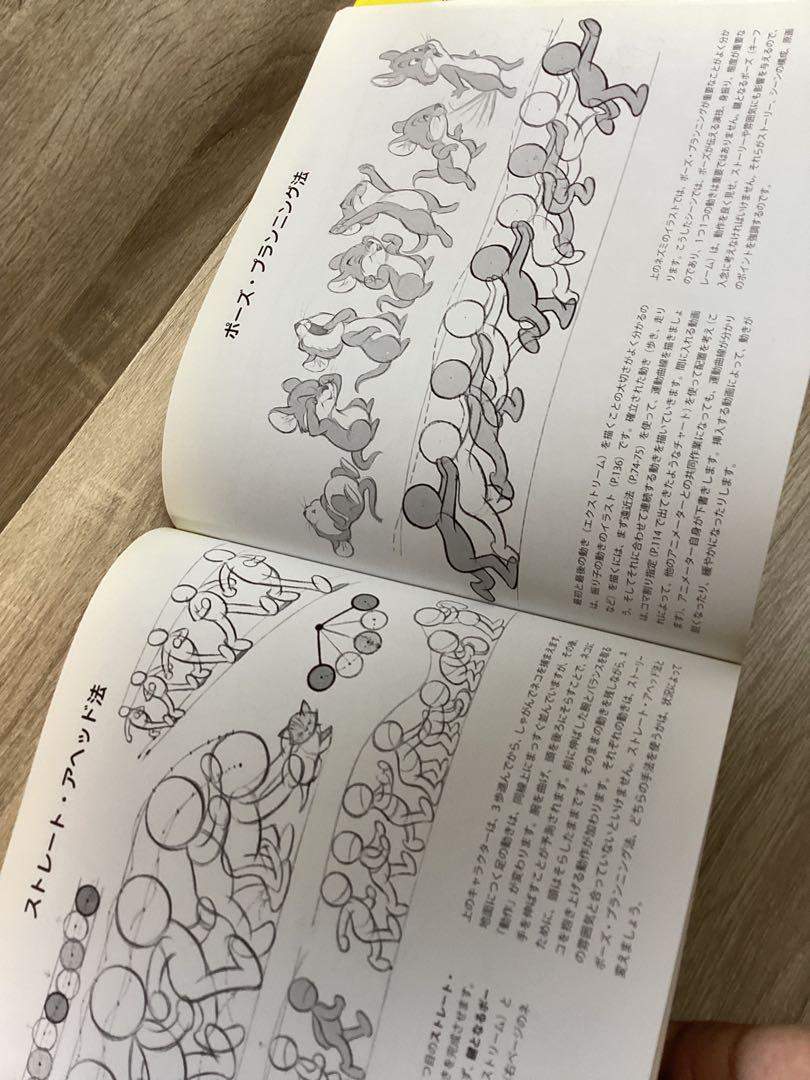 ストレート・アヘッド法
上のキャラクターは、3歩進んでから、しゃがんでネコを捕まえます。
地面につく足の動きは、同線上にまっすぐ並んでいますが、その後、
「動作」が変わります。腕を曲げ、頭を後ろにそらすことで、ネコに
手を伸ばすことが予測されます。前に伸ばした腕とバランスを取る
ために、頭はそらしたままです。そのままの動きを残しながら、ネ
コを抱き上げる動作が加わります。それぞれの動きは、ストーリー
の雰囲気と合っていないといけません。ストレート・アヘッド法と
ポーズ・プランニング法、どちらの手法を使うかは、状況によって
変えましょう。
つ目のストレート・
きを完成させます。
ず、鍵となるポー
ストリーム）と
右ページのネ
ポーズ・プランニング法
最初と最後の動き（エクストリーム）を描くことの大切さがよく分かるの
は、振り子の動きのイラスト（P.136）です。確立された動き（歩き、走り
など）を描くには、まず遠近法（P.74-75）を使って、運動曲線を描きましょ
う。そしてそれに合わせて連続する動きを描いていきます。間に入れる動画
は、コマ割り指定（P.114で出てきたようなチャート）を使って配置を考え（こ
れによって、他のアニメーターとの共同作業になっても、運動曲線が分かり
ます）、アニメーター自身が下書きします。挿入する動画によって、動きが
鋭くなったり、緩やかになったりします。
上のネズミのイラストでは、ポーズ・プランニングが重要なことがよく分か
ります。こうしたシーンでは、ポーズが伝える演技、身振り、態度が重要な
のであり、1つ1つの動きは重要ではありません。鍵となるポーズ（キーフ
レーム）は、動作を良く見せ、ストーリーや雰囲気にも影響を与えるので、
入念に考えなければいけません。それらがストーリー、シーンの構成、原画
のポイントを強調するのです。